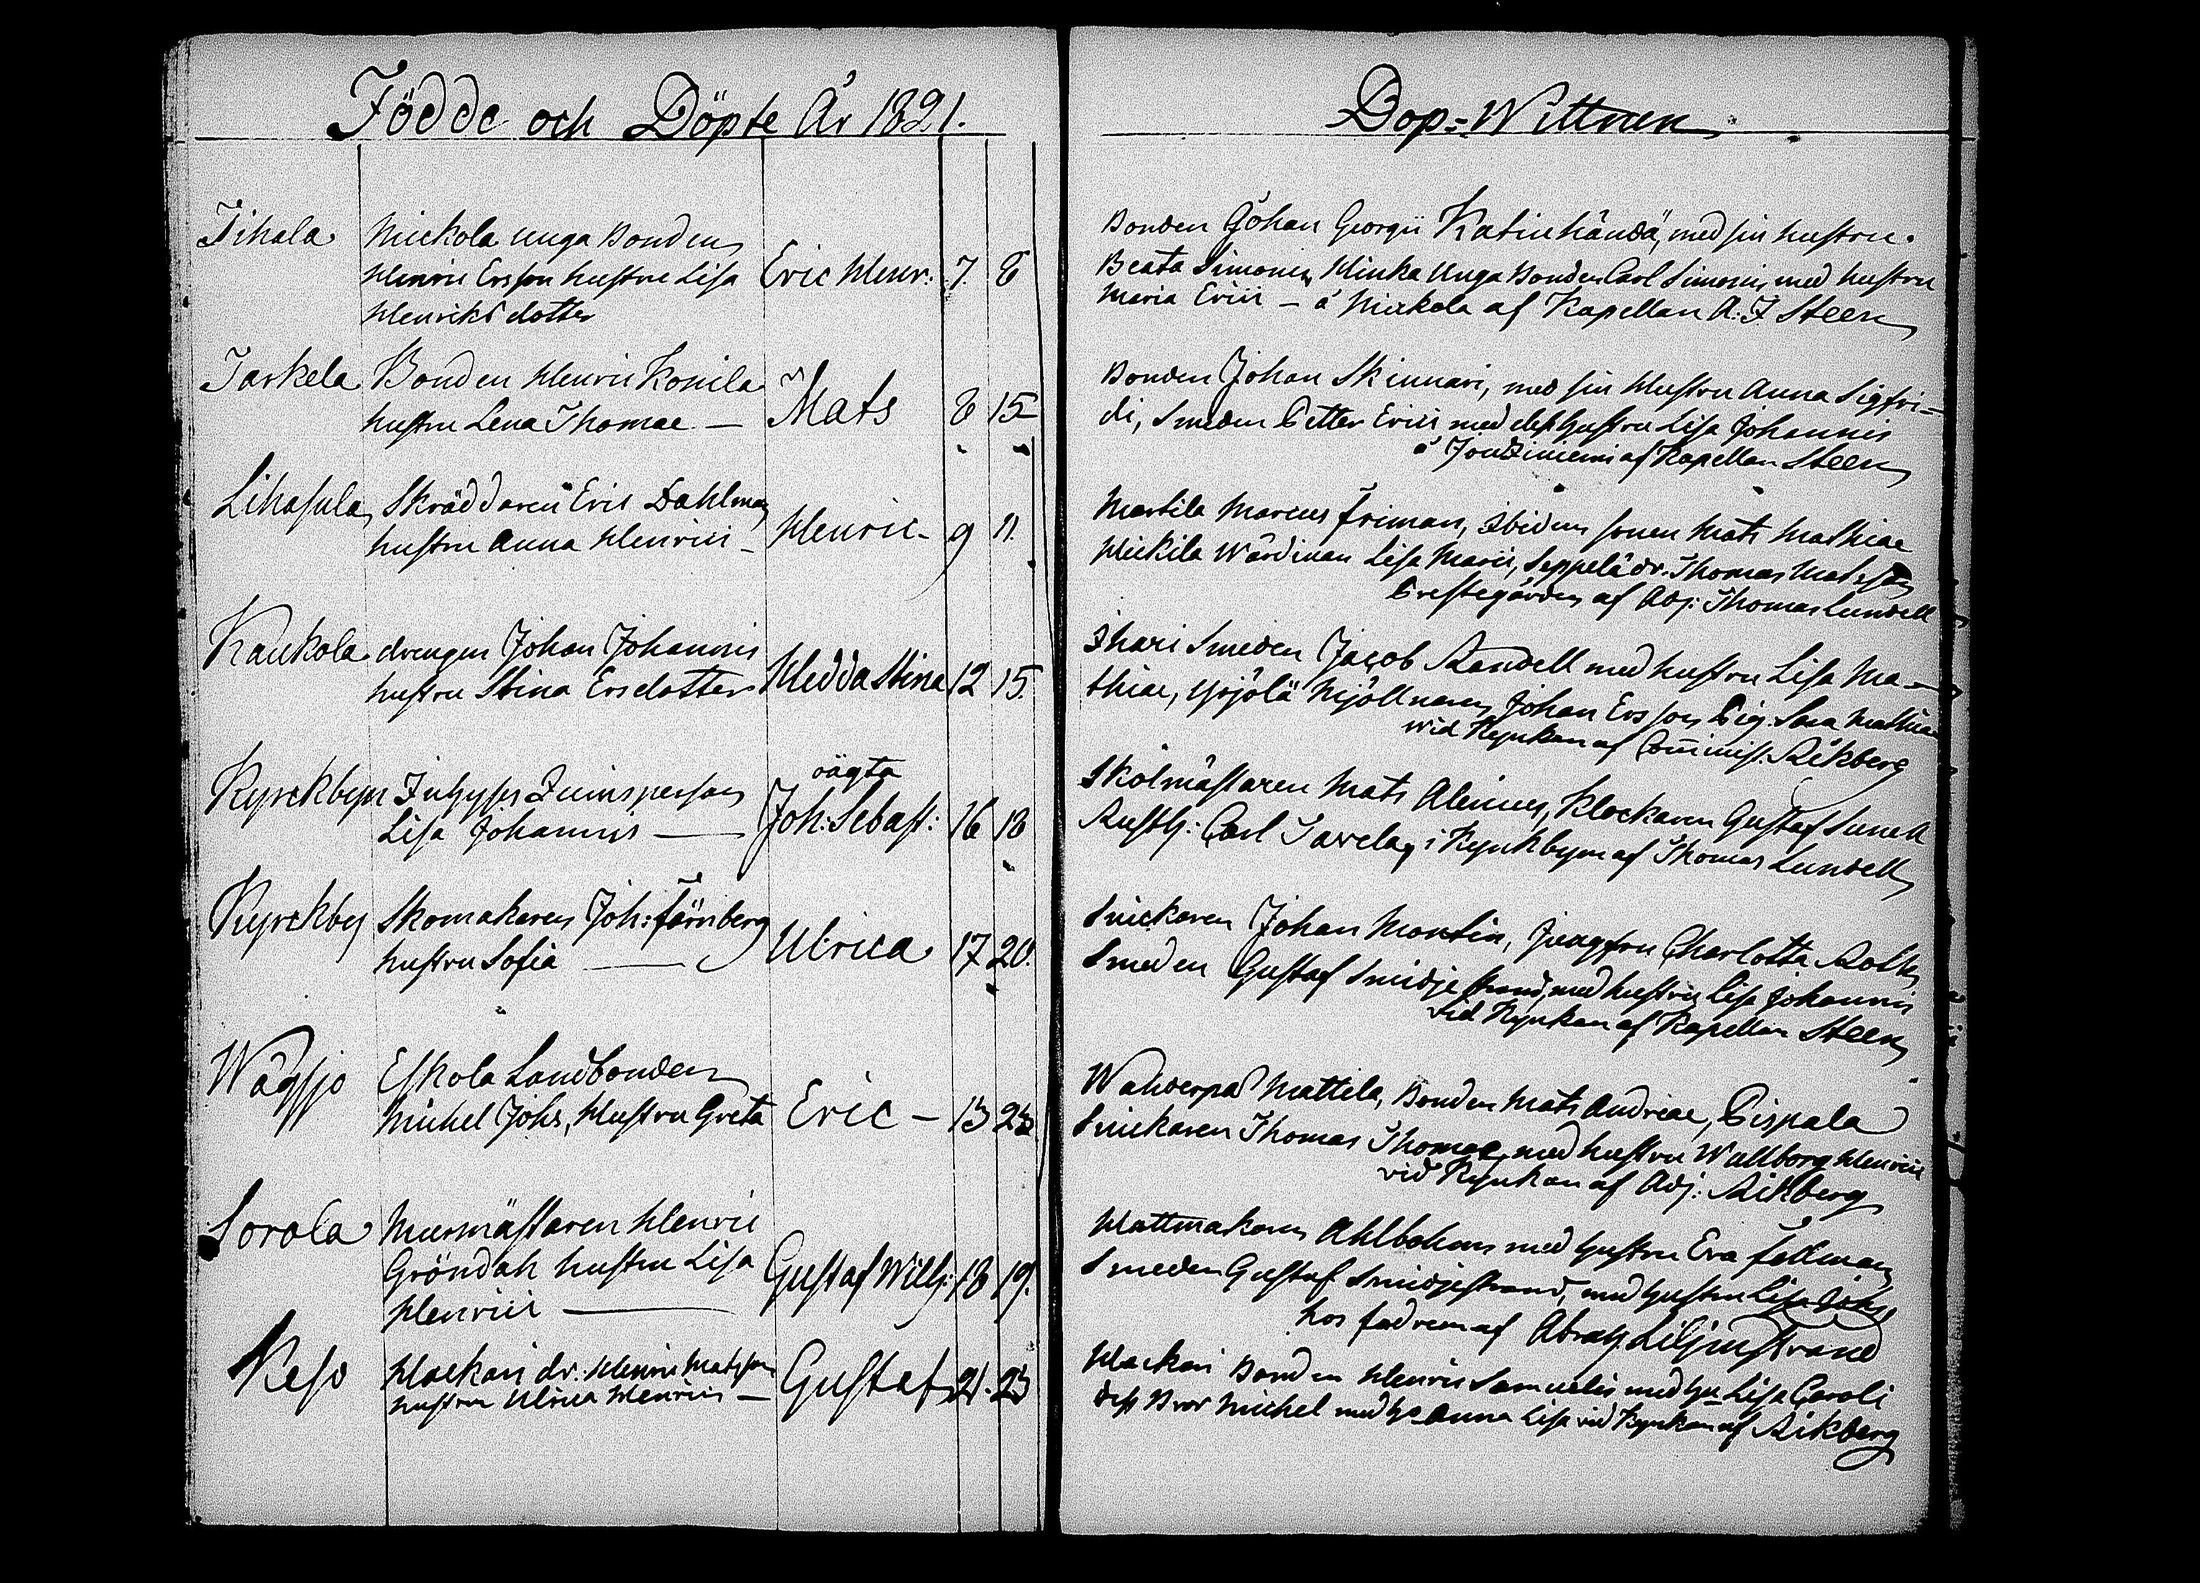 Födde och Döpte År 1821.
Jihala
Nickola unga Bonden
Henric Ersson hustru Lisa
Henriks dotter
Eric Henr: 7. 8
Jarkela
Bonden Henric Konila
hustru Lena Thomae —
Mats 8 15
Lihasula
Skräddaren Eric Dahlman
hustru Anna Henrici —
Henric - 9 11.
Kaukola
drengen Johan Johannis
hustru Stina Ersdotter
Hedda Stina 12 15.
Kyrckbyn
Inhyses Qvinsperson
Lisa Johannis —
oägta
Joh: Sebast: 16 18
Kyrckby
Skomakaren Joh: Färnberg
hustru Sofia —
Ulrica 17 20.
Wågsjo
Eskola Landbonden
Michel Johs, Hustru Greta
Eric — 13 23
Sorola
Murmästaren Henric
Gröndah hustru Lisa
Henrici —
Gustaf Wilh: 18 19.
Keso
Hackari dr. Henric Matsson
hustru Ulrica Henrici —
Gustaf 21. 23
Dop=Wittnen
Bonden Johan Georgii Katinhändä, med sin hustru.
Beata Simonis, Hinka Unga Bonden Carl Simonis med hustru
Maria Erici — å Nickola af Kapellan A. J. Steen
Bonden Johan Skinnari, med sin Hustru Anna Sigfri=
di, Smeden Petter Erici med dess Hustru Lisa Johannis
å af Kapellan Steen
Martila Marcus Friman, Ibidem sonen Mats Mathiae
Heickila Wärdinnan Lisa Marci, Seppelä dr. Thomas Matsson
Prestegården af Adj: Thomas Lundell
Ihari Smeden Jacob Randell med hustru Lisa Ma—
thiae, Yrjölä Mjöllnaren Johan Ersson Pig. Sara Mathiae
wid Kyrkan af Commiss. Aikberg
Skolmästaren Mats Alenius, Klockaren Gustaf Sunell
Rusth: Carl Javela, i Kyrkbyn af Thomas Lundell
Snickaren Johan Montin, Jungfru Charlotta Roth
Smeden Gustaf Smidjestrand, med hustru Lisa Johannis
vid Kyrkan af Kapellan Steen
Wahderpä Mattila, Bonden Mats Andreae, Pispala
Snickaren Thomas Thomae, med hustru Wallborg Henrici
vid Kyrkan af Adj: Aikberg
Hattmakaren Ahlbohm med hustru Eva Fellman,
Smeden Gustaf Smidjestrand, med hustru Lisa Johs
hos fadren af Abrah. Liljenstrand
Hackari Bonden Henric Samuelis med hu Lisa Caroli
dess Bror Michel med hu Anna Lisa vid Kyrkan af Aikberg